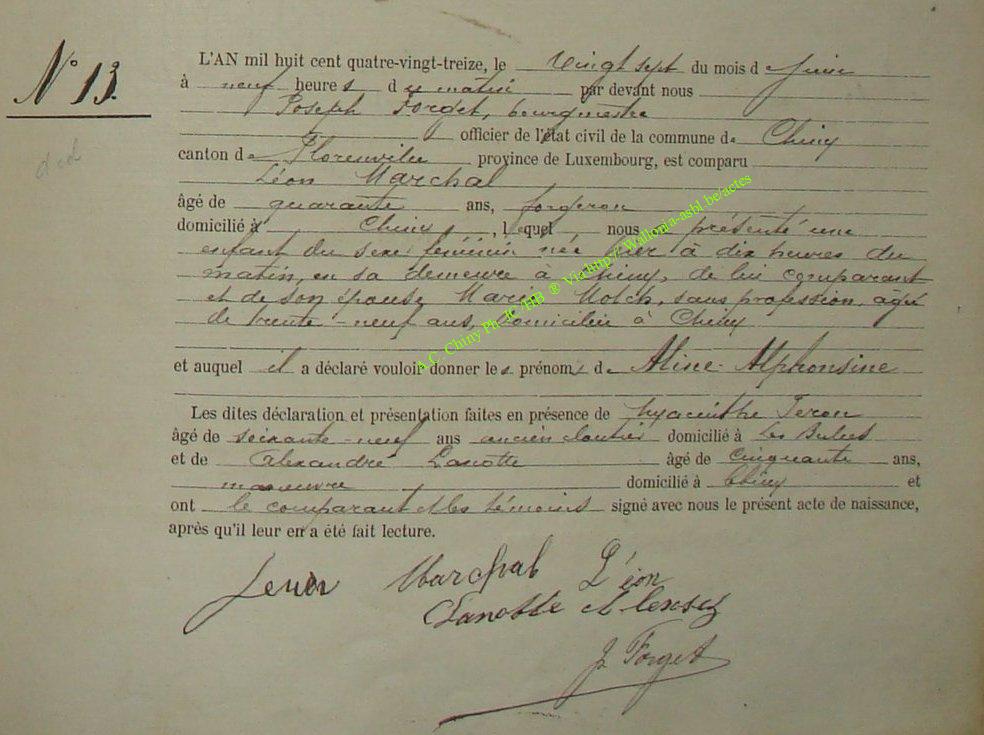 N° 13.
L'AN mil huit cent quatre-vingt-treize, le vingt sept du mois d Juin
à neuf heures du matin par devant nous
Joseph Forget, bourgmestre
officier de l'état civil de la commune de Chiny
canton de Florenville province de Luxembourg, est comparu
Léon Marchal
âgé de quarante ans, forgeron
domicilié à Chiny, lequel nous a présenté une
enfant du sexe féminin née hier à dix heures du
matin, en sa demeure à Chiny, de lui comparant
et de son épouse Marie Motch, sans profession, agée
de trente-neuf ans, domiciliée à Chiny
et auquel il a déclaré vouloir donner les prénoms de Aline-Alphonsine
Les dites déclaration et présentation faites en présence de Hyacinthe
âgé de soixante-neuf ans ancien cloutier domicilié à Les Bulles
et de Alexandre Lanotte âgé de cinquante ans,
manœuvre domicilié à Chiny et
ont le comparant et les témoins signé avec nous le présent acte de naissance,
après qu'il leur en a été fait lecture.
Marchal Léon
Lanotte
J Forget
A.C. Chiny Ph. JC /HB ® Via http:// Wallonia-asbl.be/actes